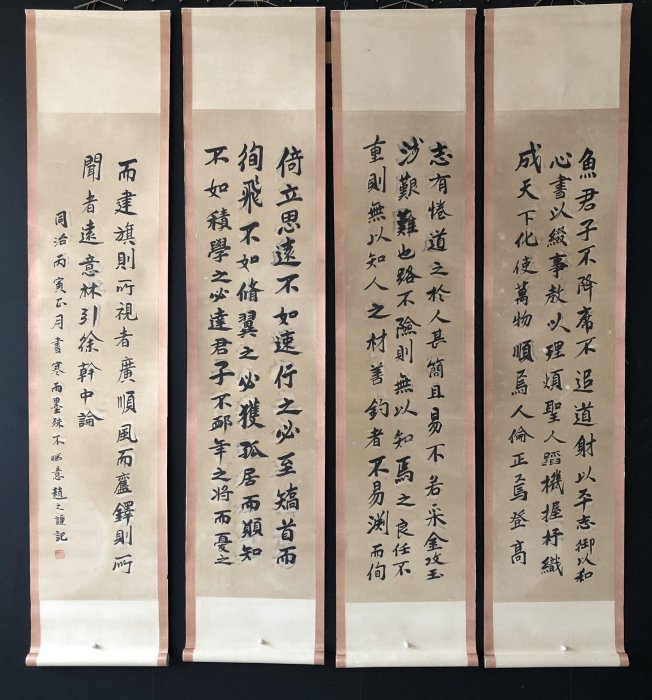 倚立思遠不如速行之必至矯首而
徇飛不如脩翼之必獲孤居而願知
不如積學之必達君子不卹年之將而憂之
志有倦道之於人甚簡且易不若采金攻玉
涉艱難也路不險則無以知馬之良任不
重則無以知人之材善釣者不易渊而徇
魚君子不降席不追道射以平志御以和
心書以綴事教以理煩聖人蹈機握杼織
成天下化使萬物順焉人倫正焉登高
而建旗則所視者廣順風而奮鐸則所
聞者遠意林引徐幹中論
同治丙寅正月書寒而墨殊不如意趙之謙記